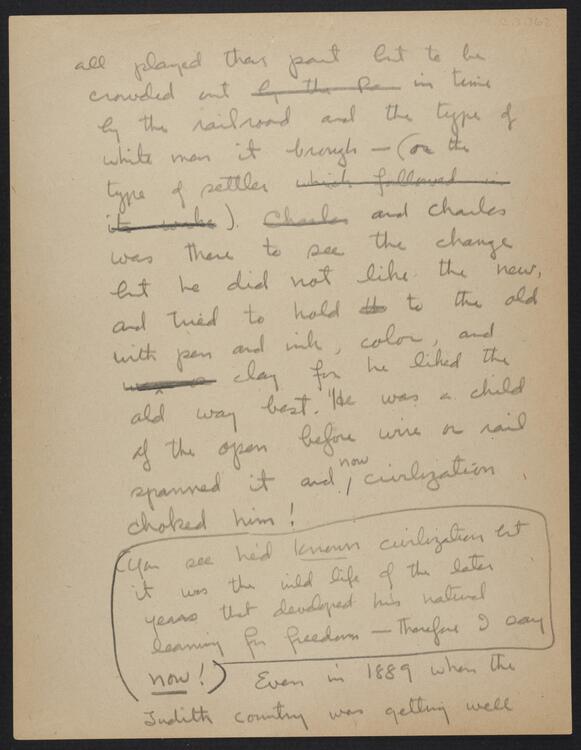 all played their part but to be
crowded out by the Ra in time
by the railroad and the type of
white man it brough — (or the
type of settler which followed in
its wake). Charles and Charles
was there to see the change
but he did not like the new,
and tried to hold to the old
with pen and ink, color, and
clay for he liked the
old way best. He was a child
of the open before wire or rail
spanned it and now, civilization
choked him!
(You see he'd known civilization but
it was the wild life of the later
years that developed his natural
leaning for freedom — therefore I say
now!) Even in 1889 when the
Judith country was getting well